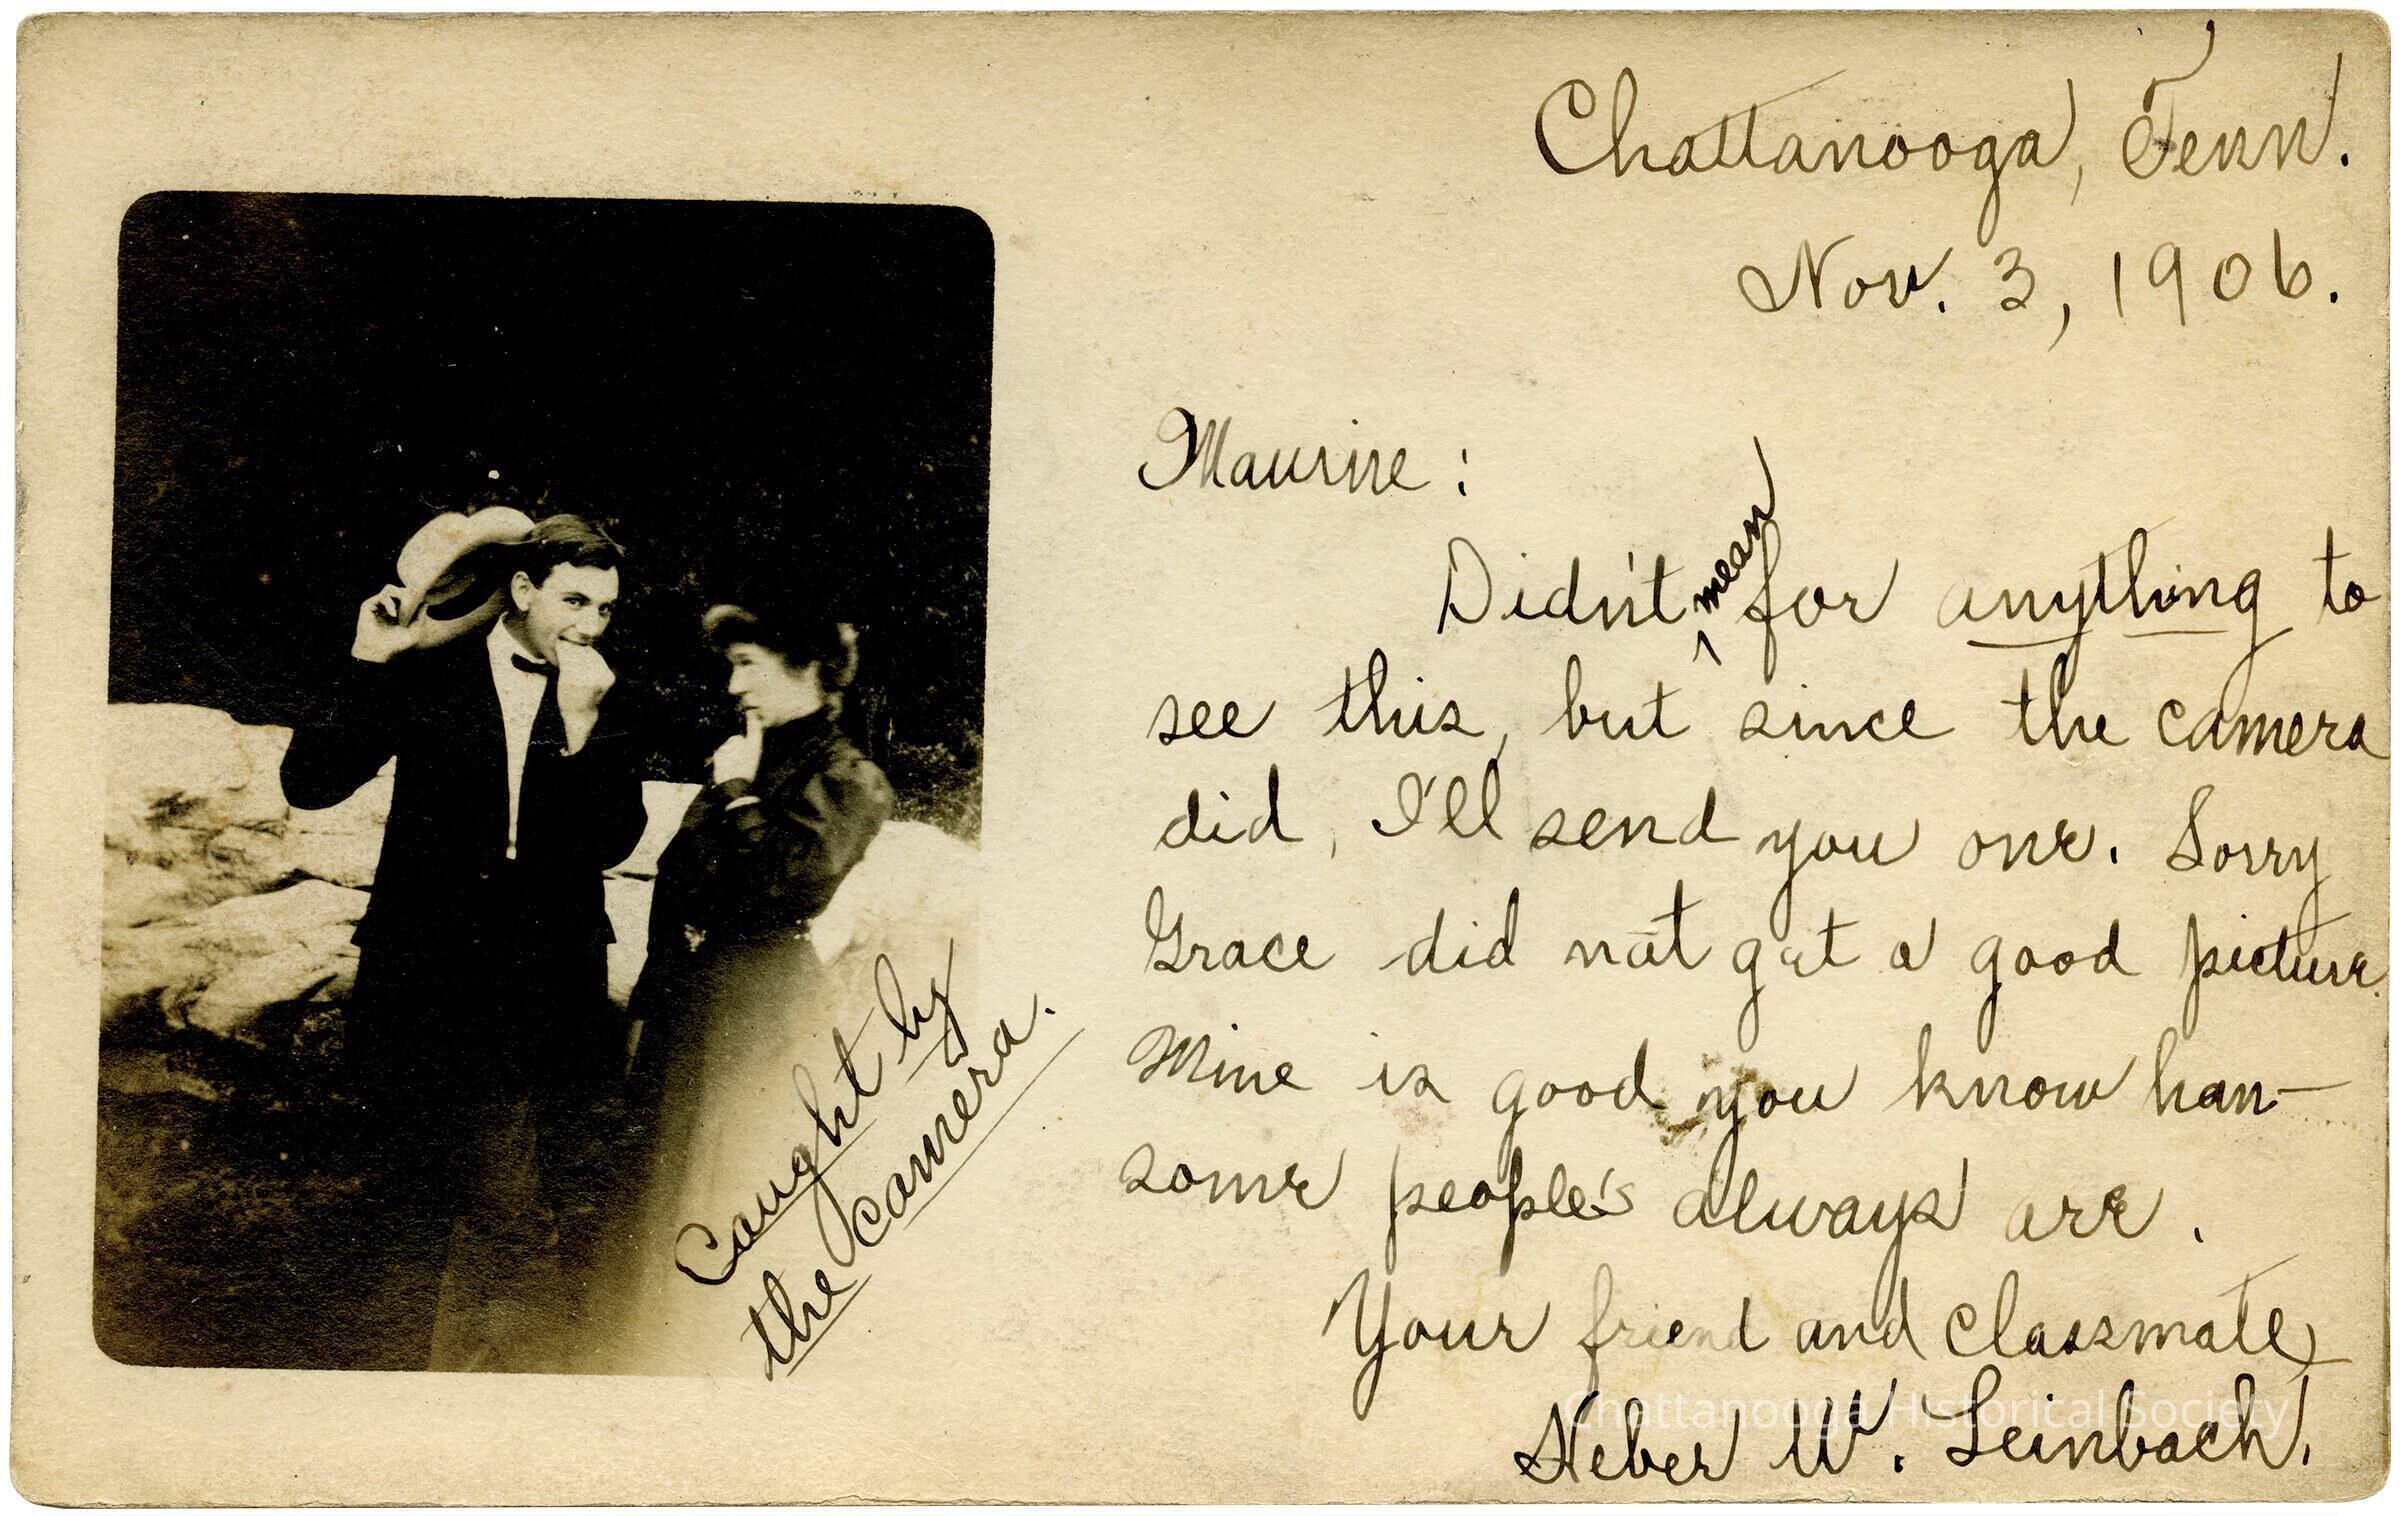 Chattanooga, Tenn.
Nov. 3, 1906.
Maurine:
Didn't mean for anything to
see this, but since the camera
did, I'll send you one. Sorry
Grace did not get a good picture.
Mine is good you know han-
some people's always are.
Your friend and classmate,
Heber W. Leinbach.
Caught by
the camera.
Chattanooga Historical Society